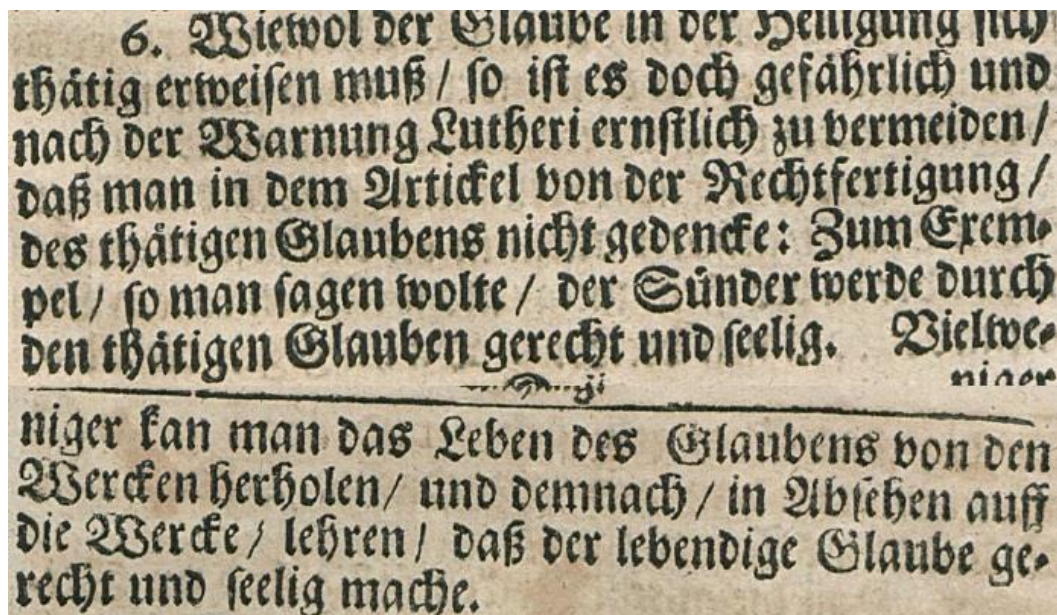 6. Wiewol der Glaube in der Heiligung sich
thätig erweisen muß / so ist es doch gefährlich und
nach der Warnung Lutheri ernstlich zu vermeiden /
daß man in dem Artickel von der Rechtfertigung /
des thätigen Glaubens nicht gedencke: Zum Exem-
pel / so man sagen wolte / der Sünder werde durch
den thätigen Glauben gerecht und seelig. Vielwe-
niger
niger kan man das Leben des Glaubens von den
Wercken herholen / und demnach / in Absehen auff
die Wercke / lehren / daß der lebendige Glaube ge-
recht und seelig mache.